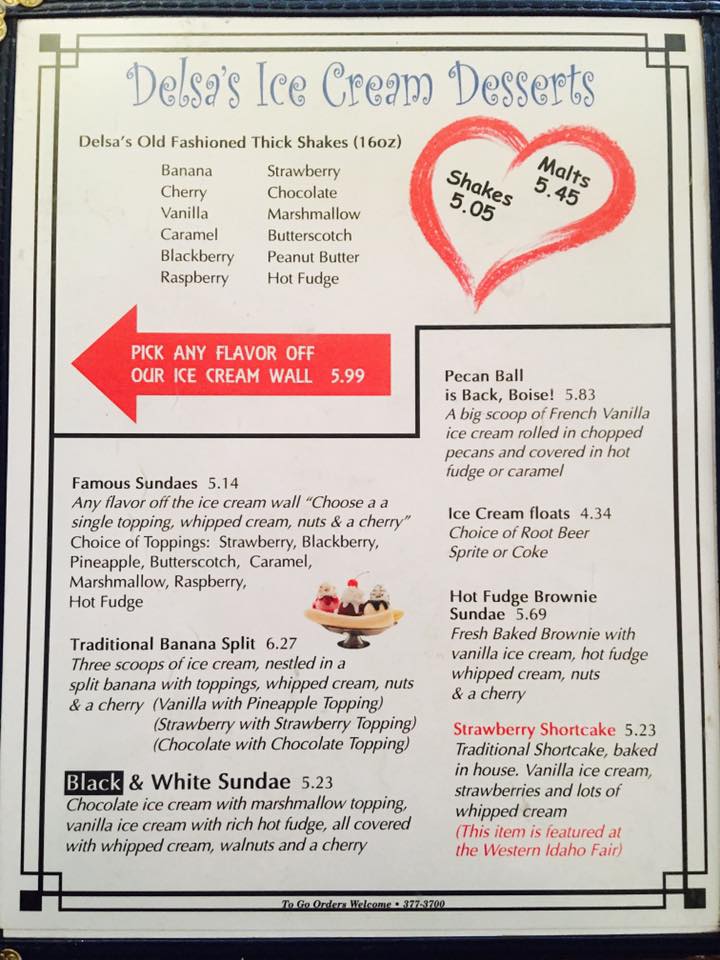 Delsa's Ice Cream Desserts
Delsa's Old Fashioned Thick Shakes (16oz)
Banana Strawberry
Cherry Chocolate
Vanilla Marshmallow
Caramel Butterscotch
Blackberry Peanut Butter
Raspberry Hot Fudge
Shakes
5.05
Malts
5.45
PICK ANY FLAVOR OFF
OUR ICE CREAM WALL 5.99
Famous Sundaes 5.14
Any flavor off the ice cream wall "Choose a a
single topping, whipped cream, nuts & a cherry"
Choice of Toppings: Strawberry, Blackberry,
Pineapple, Butterscotch, Caramel,
Marshmallow, Raspberry,
Hot Fudge
Traditional Banana Split 6.27
Three scoops of ice cream, nestled in a
split banana with toppings, whipped cream, nuts
& a cherry (Vanilla with Pineapple Topping)
(Strawberry with Strawberry Topping)
(Chocolate with Chocolate Topping)
Black & White Sundae 5.23
Chocolate ice cream with marshmallow topping,
vanilla ice cream with rich hot fudge, all covered
with whipped cream, walnuts and a cherry
Pecan Ball
is Back, Boise! 5.83
A big scoop of French Vanilla
ice cream rolled in chopped
pecans and covered in hot
fudge or caramel
Ice Cream floats 4.34
Choice of Root Beer
Sprite or Coke
Hot Fudge Brownie
Sundae 5.69
Fresh Baked Brownie with
vanilla ice cream, hot fudge
whipped cream, nuts
& a cherry
Strawberry Shortcake 5.23
Traditional Shortcake, baked
in house. Vanilla ice cream,
strawberries and lots of
whipped cream
(This item is featured at
the Western Idaho Fair)
To Go Orders Welcome • 377-3700